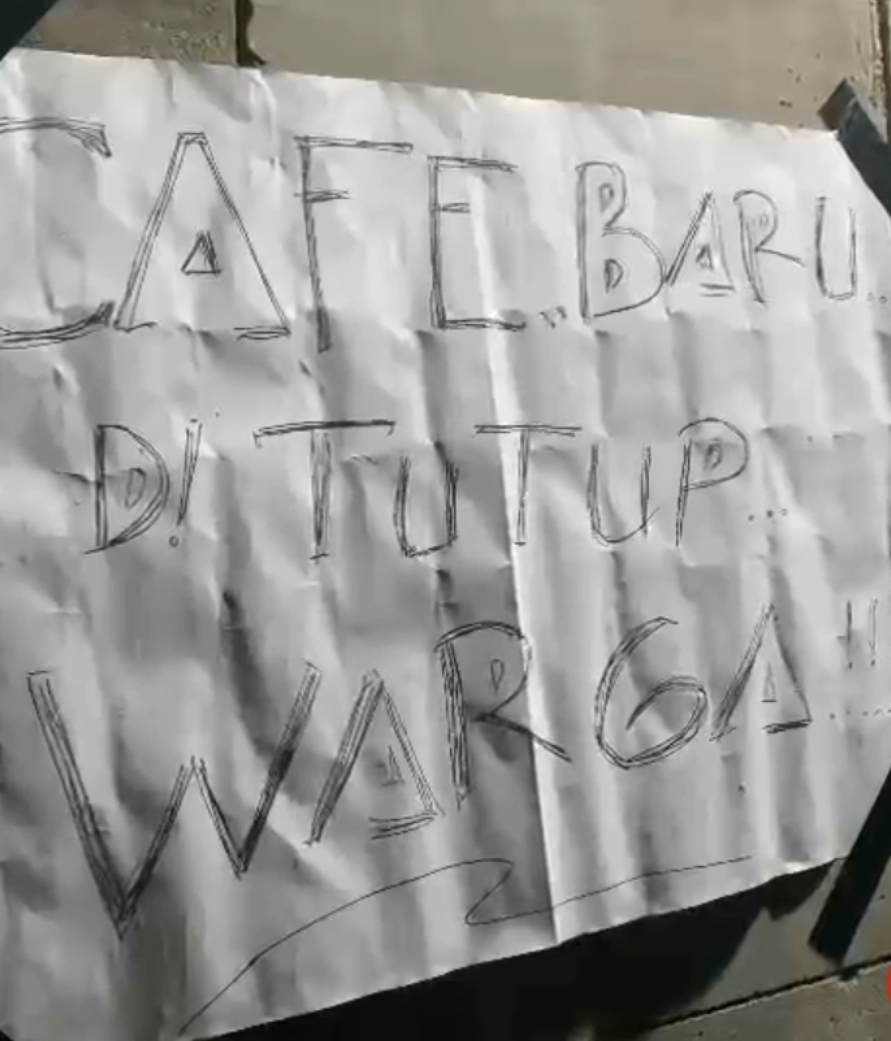 CAFE..BARU..
DI TUTUP...
WARGA!!.....